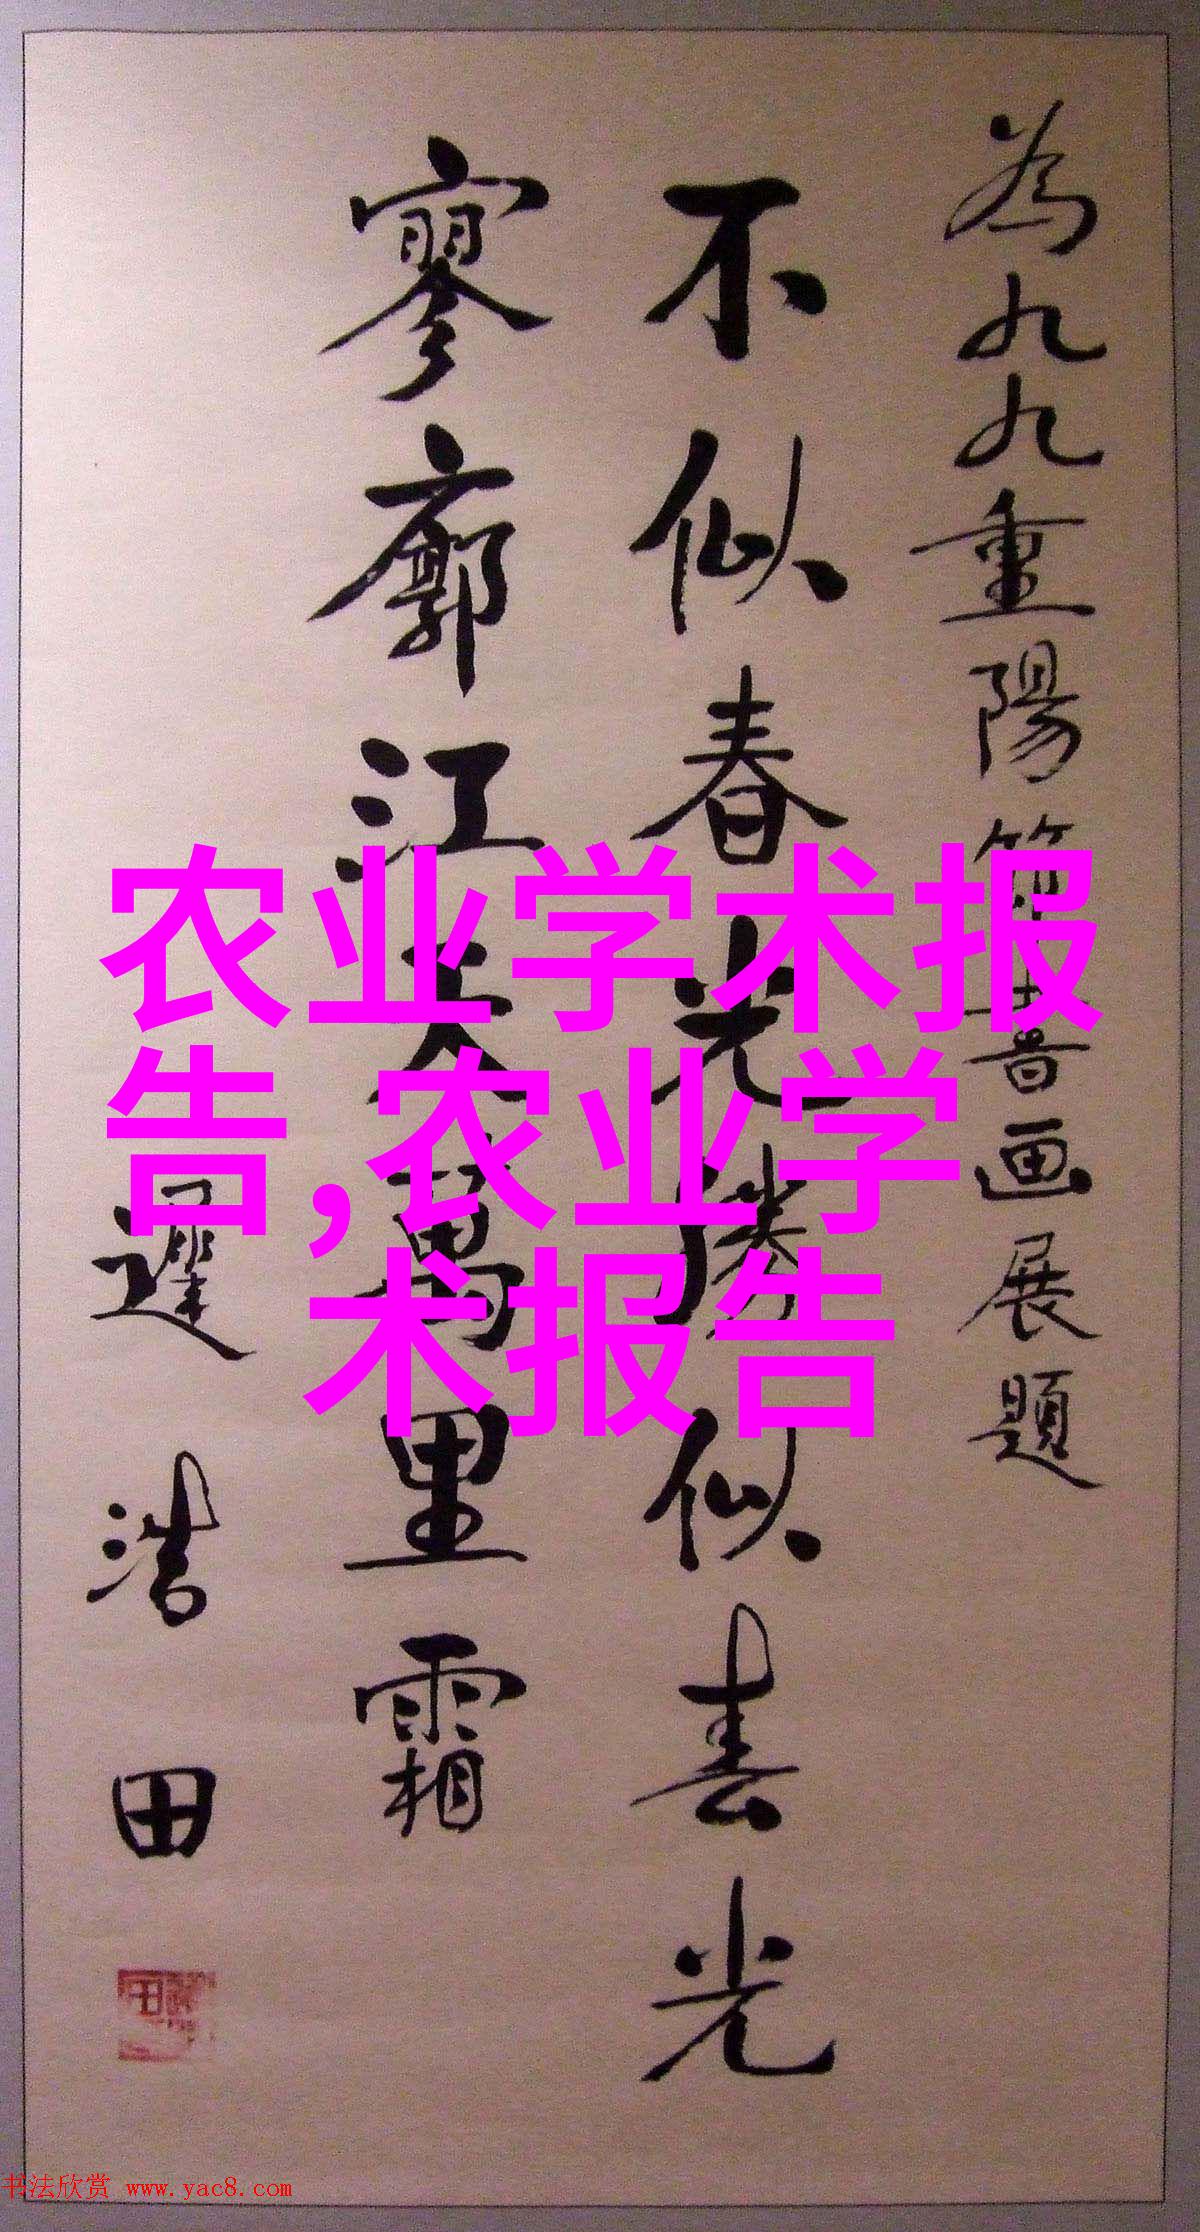 為九九重陽節書画展題
不似春光勝似春光
寥廓江天萬里霜
遲浩田
农业学术报
告,农业学
术报告
书法欣赏 www.yac8.com